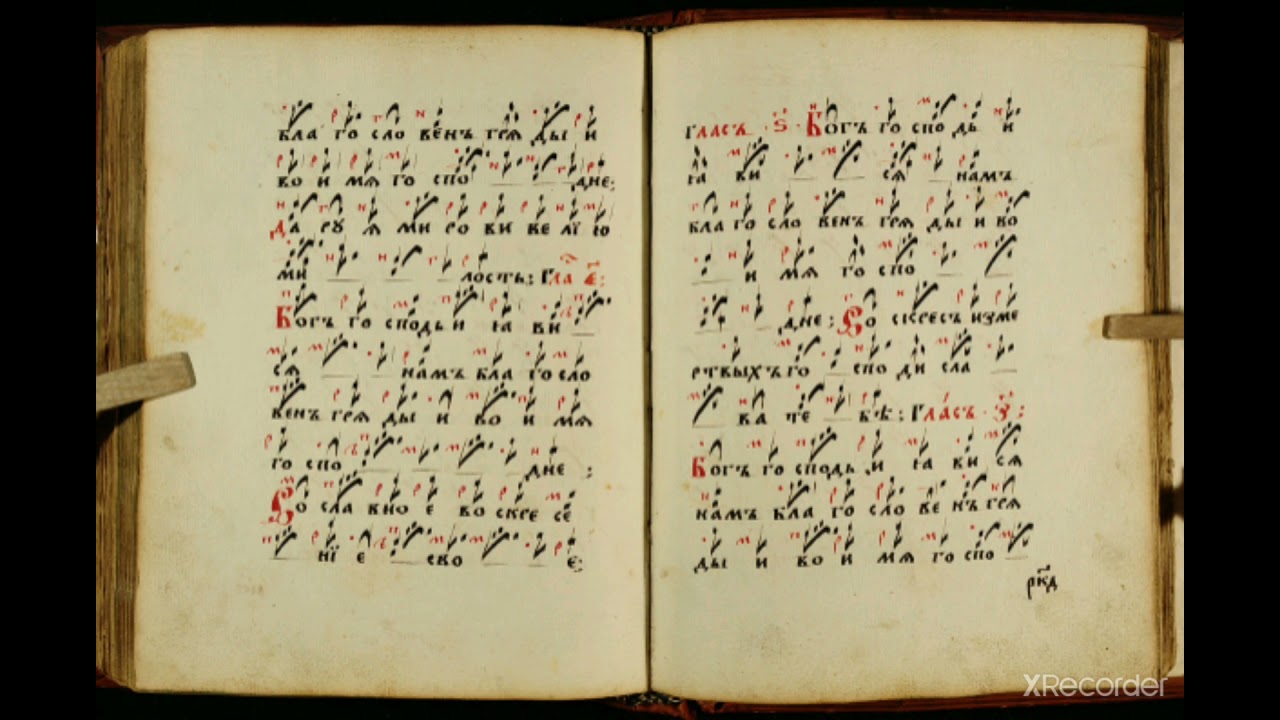 бла го сло венъ гря ды и
во и мя го спо дне:
да ру я ми ро ви ве лїю
ми лость: Гла є:
Богъ го сподь и ꙗ ви
ся намъ бла го сло
венъ гря ды и во и мя
го спо дне:
Во сла вно е во скре се
нїе сво е
гласъ ѕ Богъ го спо дь и
ꙗ ви ся намъ
бла го сло венъ гря ды и во
и мя го спо
дне: Во скресъ изме
ртвыхъ го спо ди сла
ва те бѣ: Гласъ з:
Богъ го сподь и ꙗ ви ся
намъ бла го сло ве нъ гря
ды и во и мя го спо
рк҃д
XRecorder